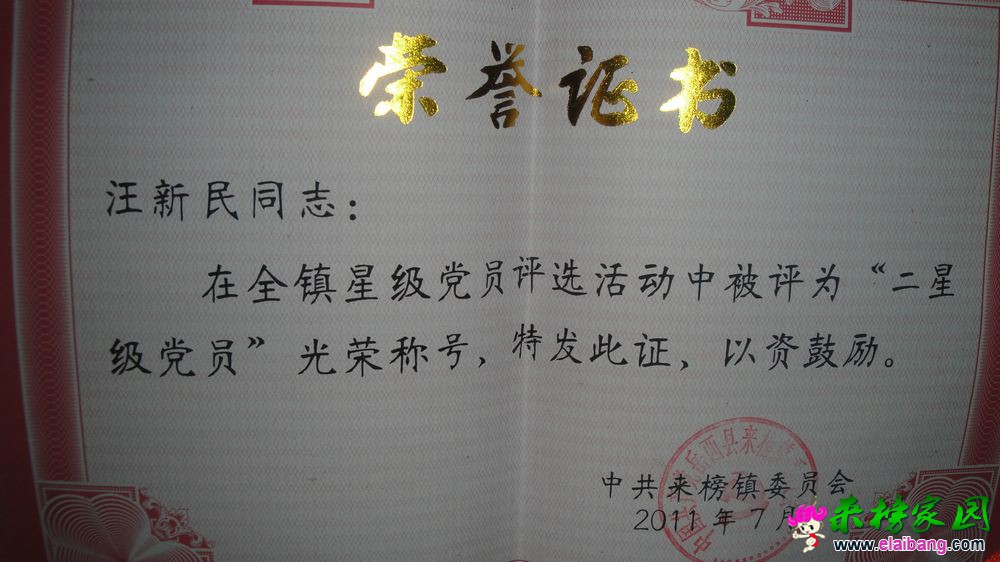 荣誉证书
汪新民同志：
在全镇星级党员评选活动中被评为“二星
级党员”光荣称号，特发此证、以资鼓励。
岳西县来榜
中共来榜镇委员会
2011年7月
来榜家园
www.elaibang.com